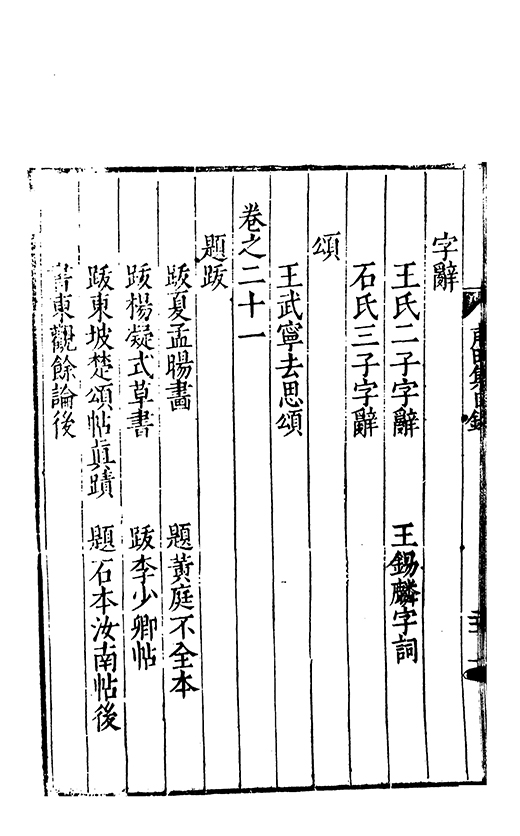 字辭
王氏二子字辭　王錫麟字詞
石氏三子字辭
頌
王武寧去思頌
卷之二十一
題跋
跋夏孟暘畫　題黃庭不全本
跋楊凝式草書　跋李少卿帖
跋東坡楚頌帖真蹟　題石本汝南帖後
書東觀餘論後